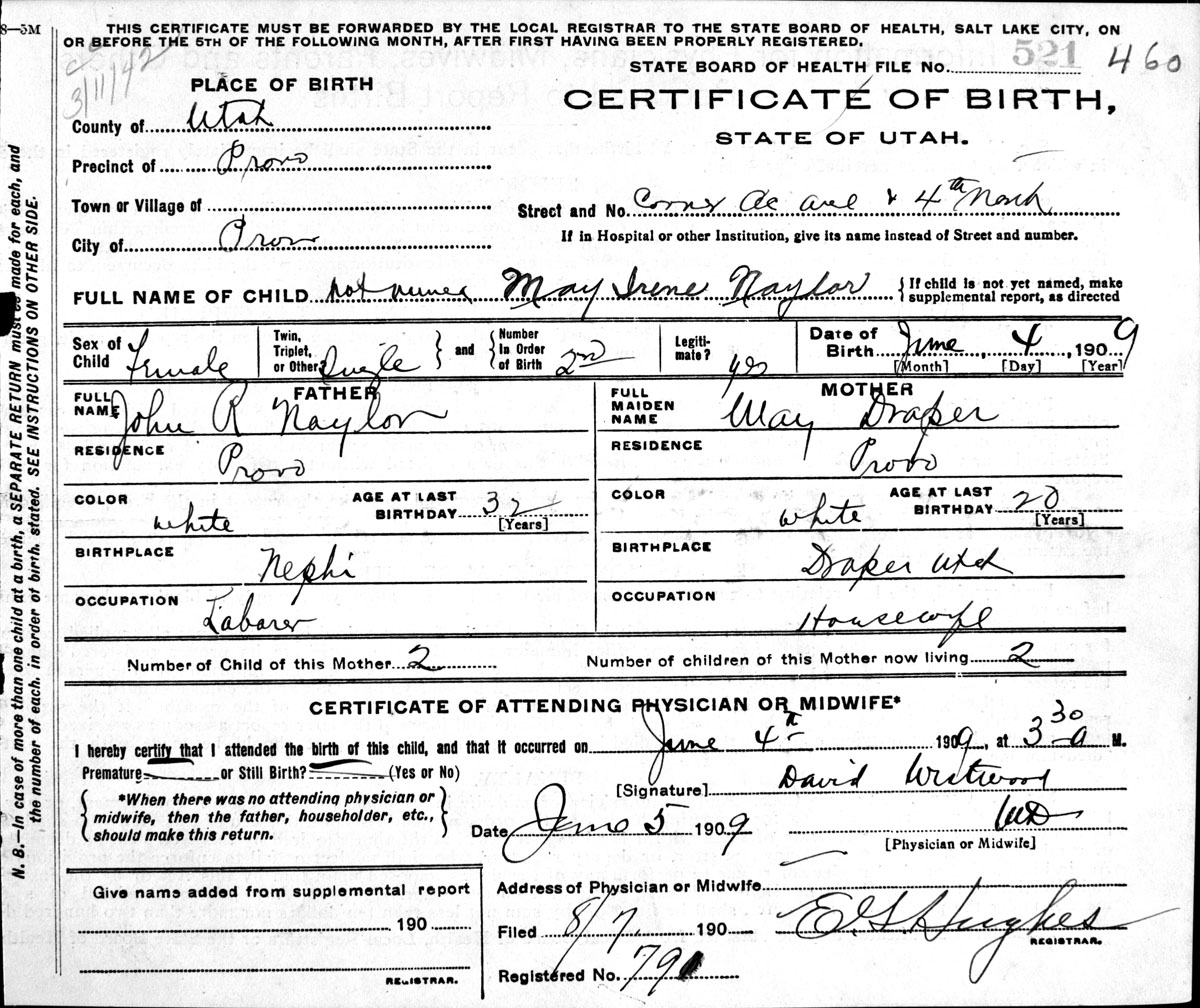 8—5M
THIS CERTIFICATE MUST BE FORWARDED BY THE LOCAL REGISTRAR TO THE STATE BOARD OF HEALTH, SALT LAKE CITY, ON
OR BEFORE THE 5TH OF THE FOLLOWING MONTH, AFTER FIRST HAVING BEEN PROPERLY REGISTERED.
3/11/42
STATE BOARD OF HEALTH FILE NO. 521 460
PLACE OF BIRTH
CERTIFICATE OF BIRTH,
STATE OF UTAH.
County of Utah
Precinct of Provo
Town or Village of
Street and No. Corner Ac ave & 4th North
City of Provo
If in Hospital or other Institution, give its name instead of Street and number.
FULL NAME OF CHILD not named May Irene Naylor {If child is not yet named, make
supplemental report, as directed
Sex of Child Female
Twin, Triplet, or Other Single } and { Number In Order of Birth 2nd
Legitimate? yes
Date of Birth June, 4, 1909
[Month] [Day] [Year]
FATHER
FULL NAME John R Naylor
MOTHER
FULL MAIDEN NAME May Draper
RESIDENCE Provo
RESIDENCE Provo
COLOR white AGE AT LAST BIRTHDAY 32 [Years]
COLOR white AGE AT LAST BIRTHDAY 20 [Years]
BIRTHPLACE Nephi
BIRTHPLACE Draper Utah
OCCUPATION Laborer
OCCUPATION Housewife
Number of Child of this Mother 2
Number of children of this Mother now living 2
CERTIFICATE OF ATTENDING PHYSICIAN OR MIDWIFE*
I hereby certify that I attended the birth of this child, and that it occurred on June 4th 1909, at 3 30 a M.
Premature or Still Birth? (Yes or No)
[Signature] David Westwood
{ *When there was no attending physician or
midwife, then the father, householder, etc.,
should make this return. }
Date June 5 1909
MD
[Physician or Midwife]
Give name added from supplemental report
190
REGISTRAR.
Address of Physician or Midwife
Filed 8/7. 190 E G Hughes
REGISTRAR.
Registered No. 79
N. B.—In case of more than one child at a birth, a SEPARATE RETURN must be made for each, and
the number of each, in order of birth, stated. SEE INSTRUCTIONS ON OTHER SIDE.